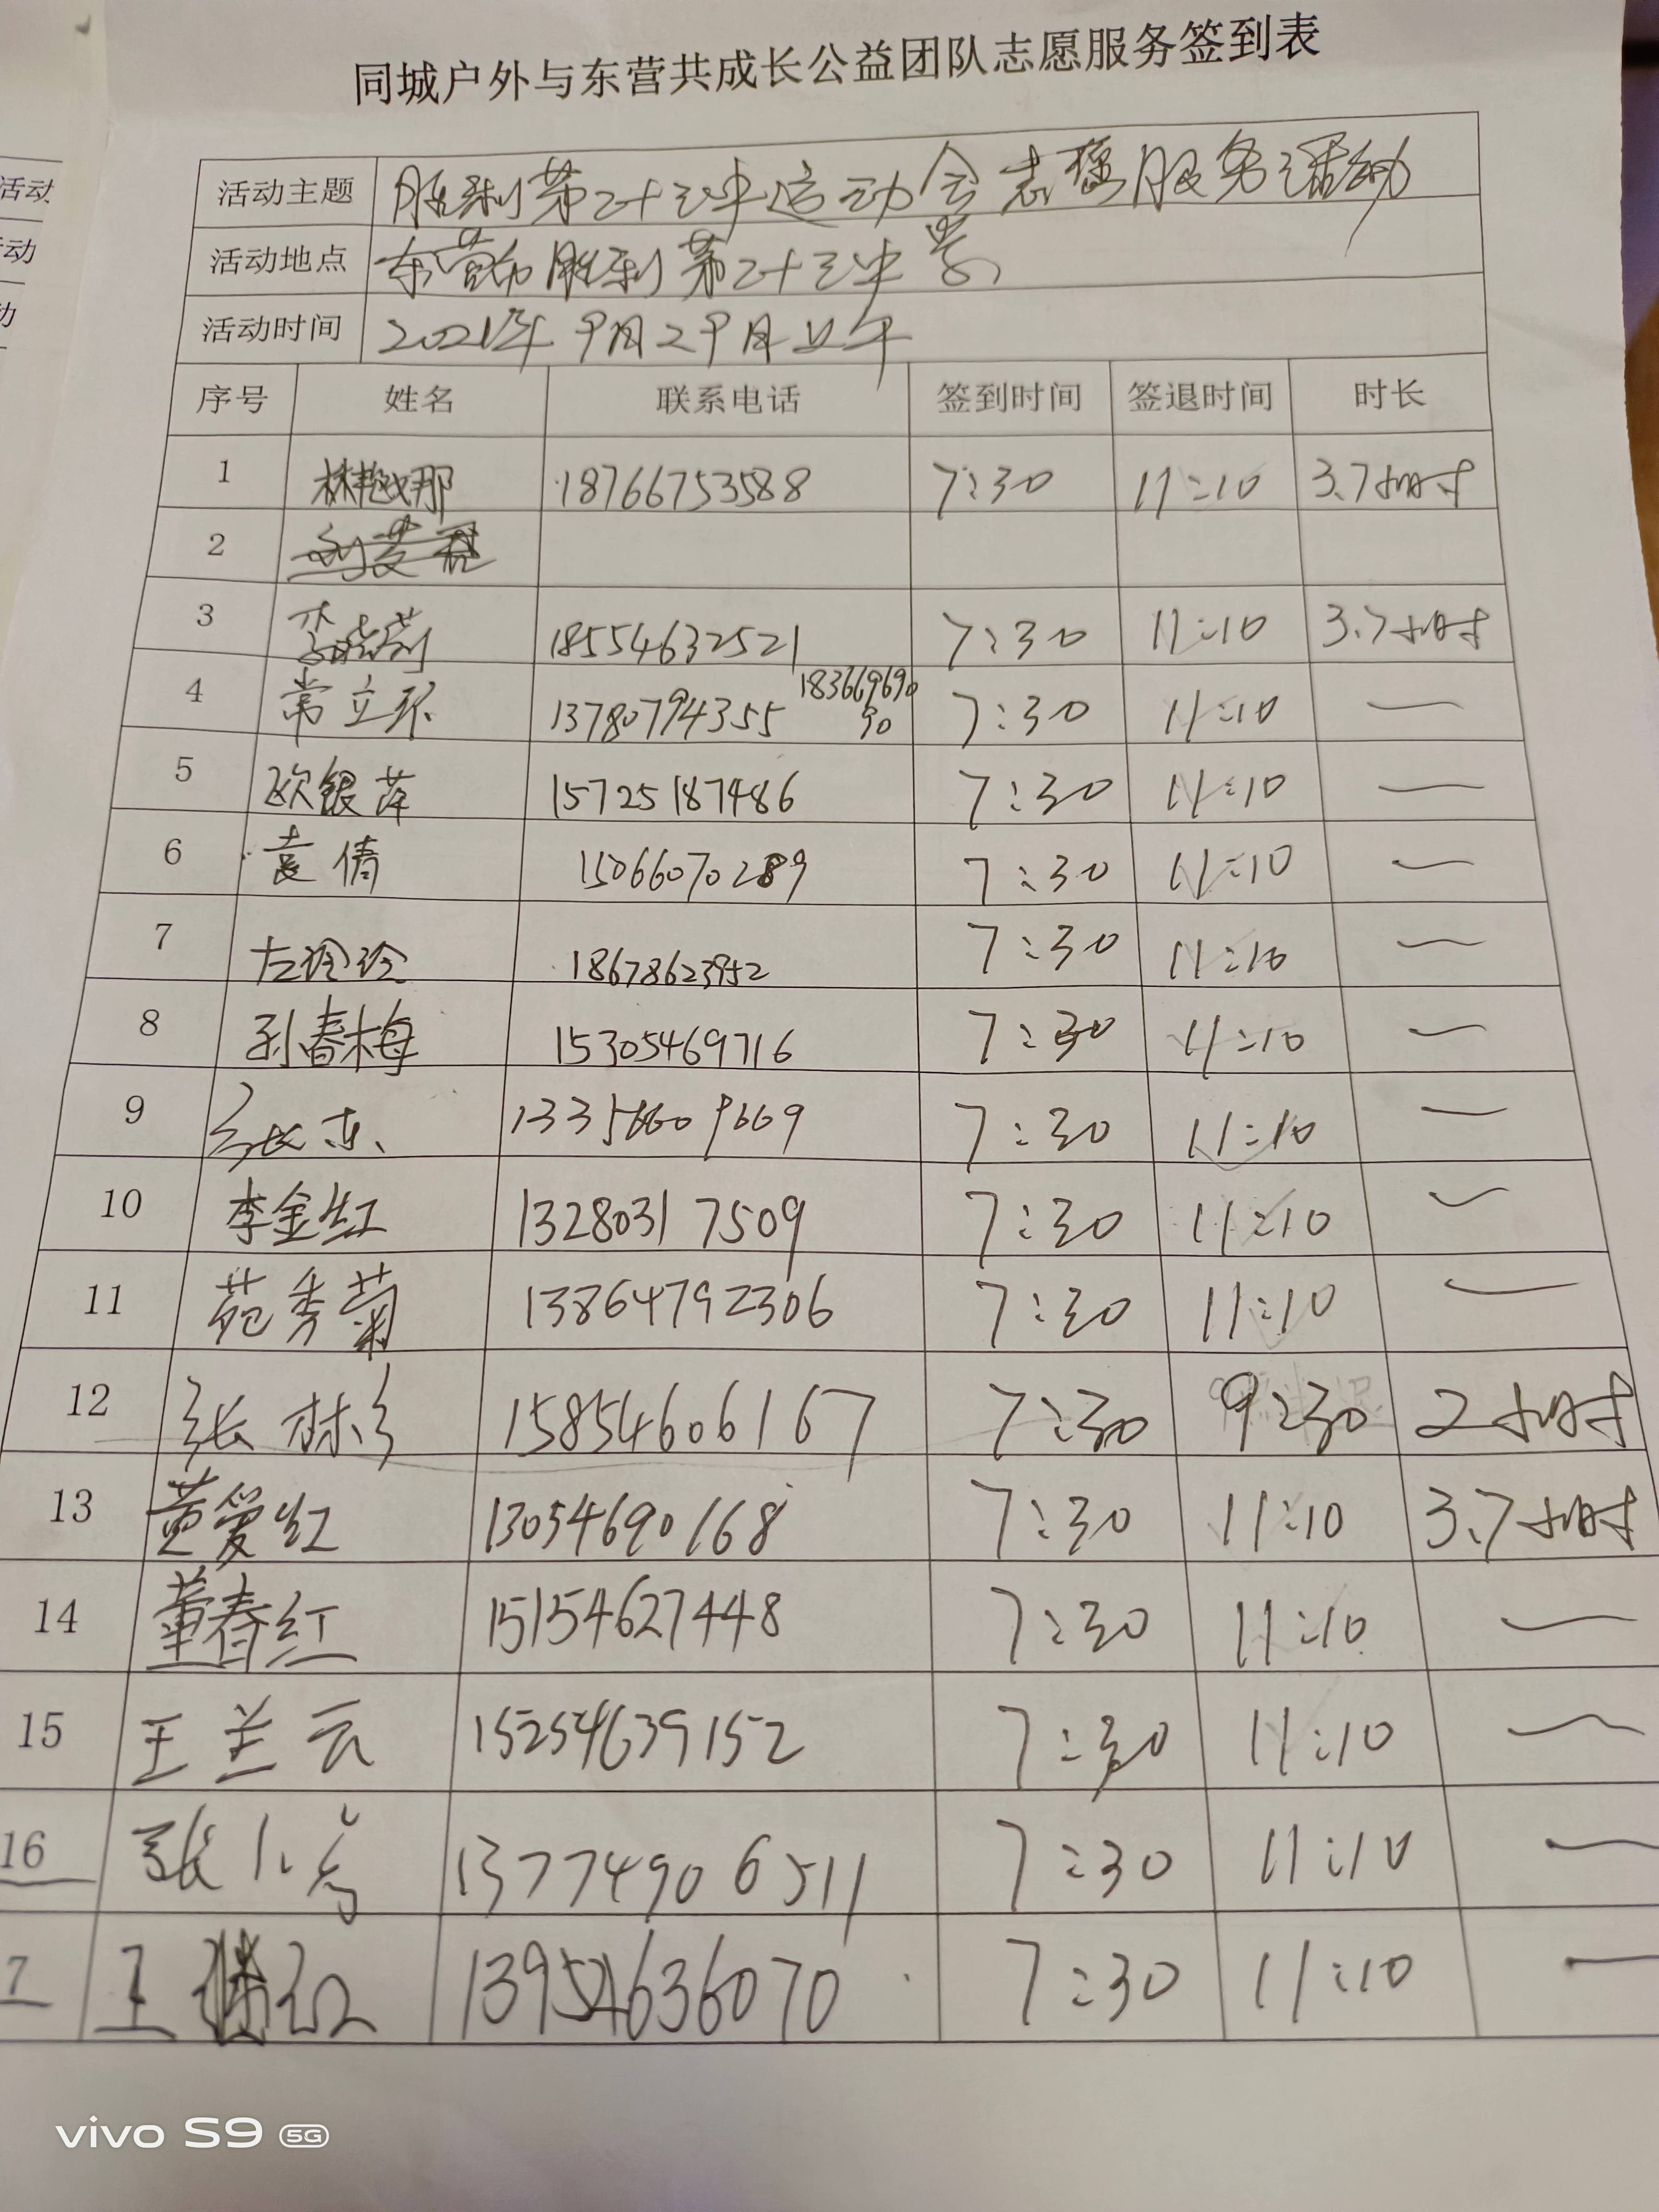 同城户外与东营共成长公益团队志愿服务签到表
活动主题 胜利第二十三中运动会志愿服务活动
活动地点 东营市胜利第二十三中学
活动时间 2021年9月29日上午
序号 姓名 联系电话 签到时间 签退时间 时长
1 林越那 18766753588 7:30 11:10 3.7小时
2
3 李晓莉 18554632521 7:30 11:10 3.7小时
4 常立环 13780794355 183669690 90 7:30 11:10 —
5 欧银萍 15725187486 7:30 11:10 —
6 袁倩 15066070289 7:30 11:10 —
7 左玲玲 18678623952 7:30 11:10 —
8 孙春梅 15305469716 7:30 11:10 —
9 张东 7:30 11:10 —
10 李金红 13280317509 7:30 11:10 —
11 苑秀菊 13864792306 7:30 11:10 —
12 张彬彬 15854606167 7:30 9:30 2小时
13 黄爱红 13054690168 7:30 11:10 3.7小时
14 董春红 15154627448 7:30 11:10 —
15 王兰云 15254639152 7:30 11:10 —
16 张小芳 13774906511 7:30 11:10 —
7 王 红 13954636070 7:30 11:10 —
活动
活动
动
vivo S9 5G